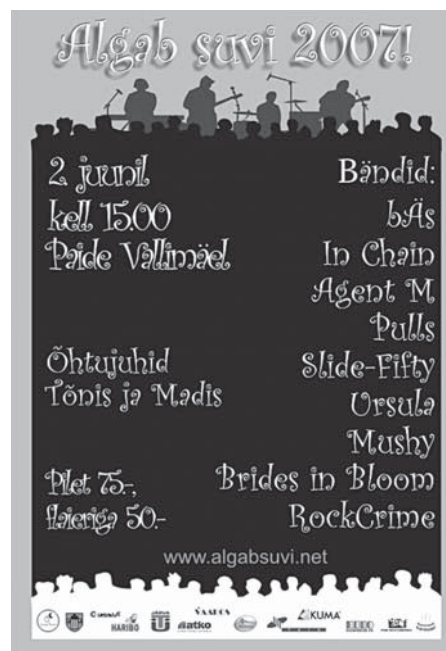 Algab suvi 2007!
2. juunil
kell 15.00
Paide Vallimäel
Õhtujuhid
Tõnis ja Madis
Pilet 75.-,
flaieriga 50.-
Bändid:
bÄs
In Chain
Agent M
Pulls
Slide-Fifty
Ursula
Mushy
Brides in Bloom
RockCrime
www.algabsuvi.net
HARIBO
matko
KUMA